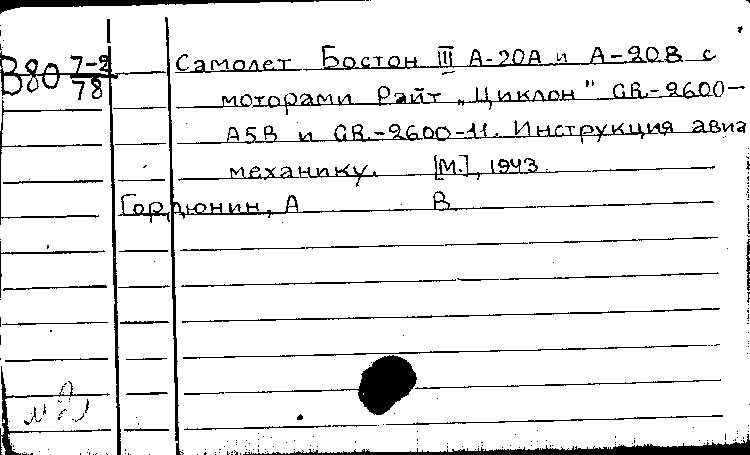 В80 7-2/78
Самолет Бостон III А-20А и А-20В с
моторами Райт „Циклон" GR-2600-
А5В и GR-2600-11. Инструкция авиа
механику. [М.], 1943
Гордюнин, А В